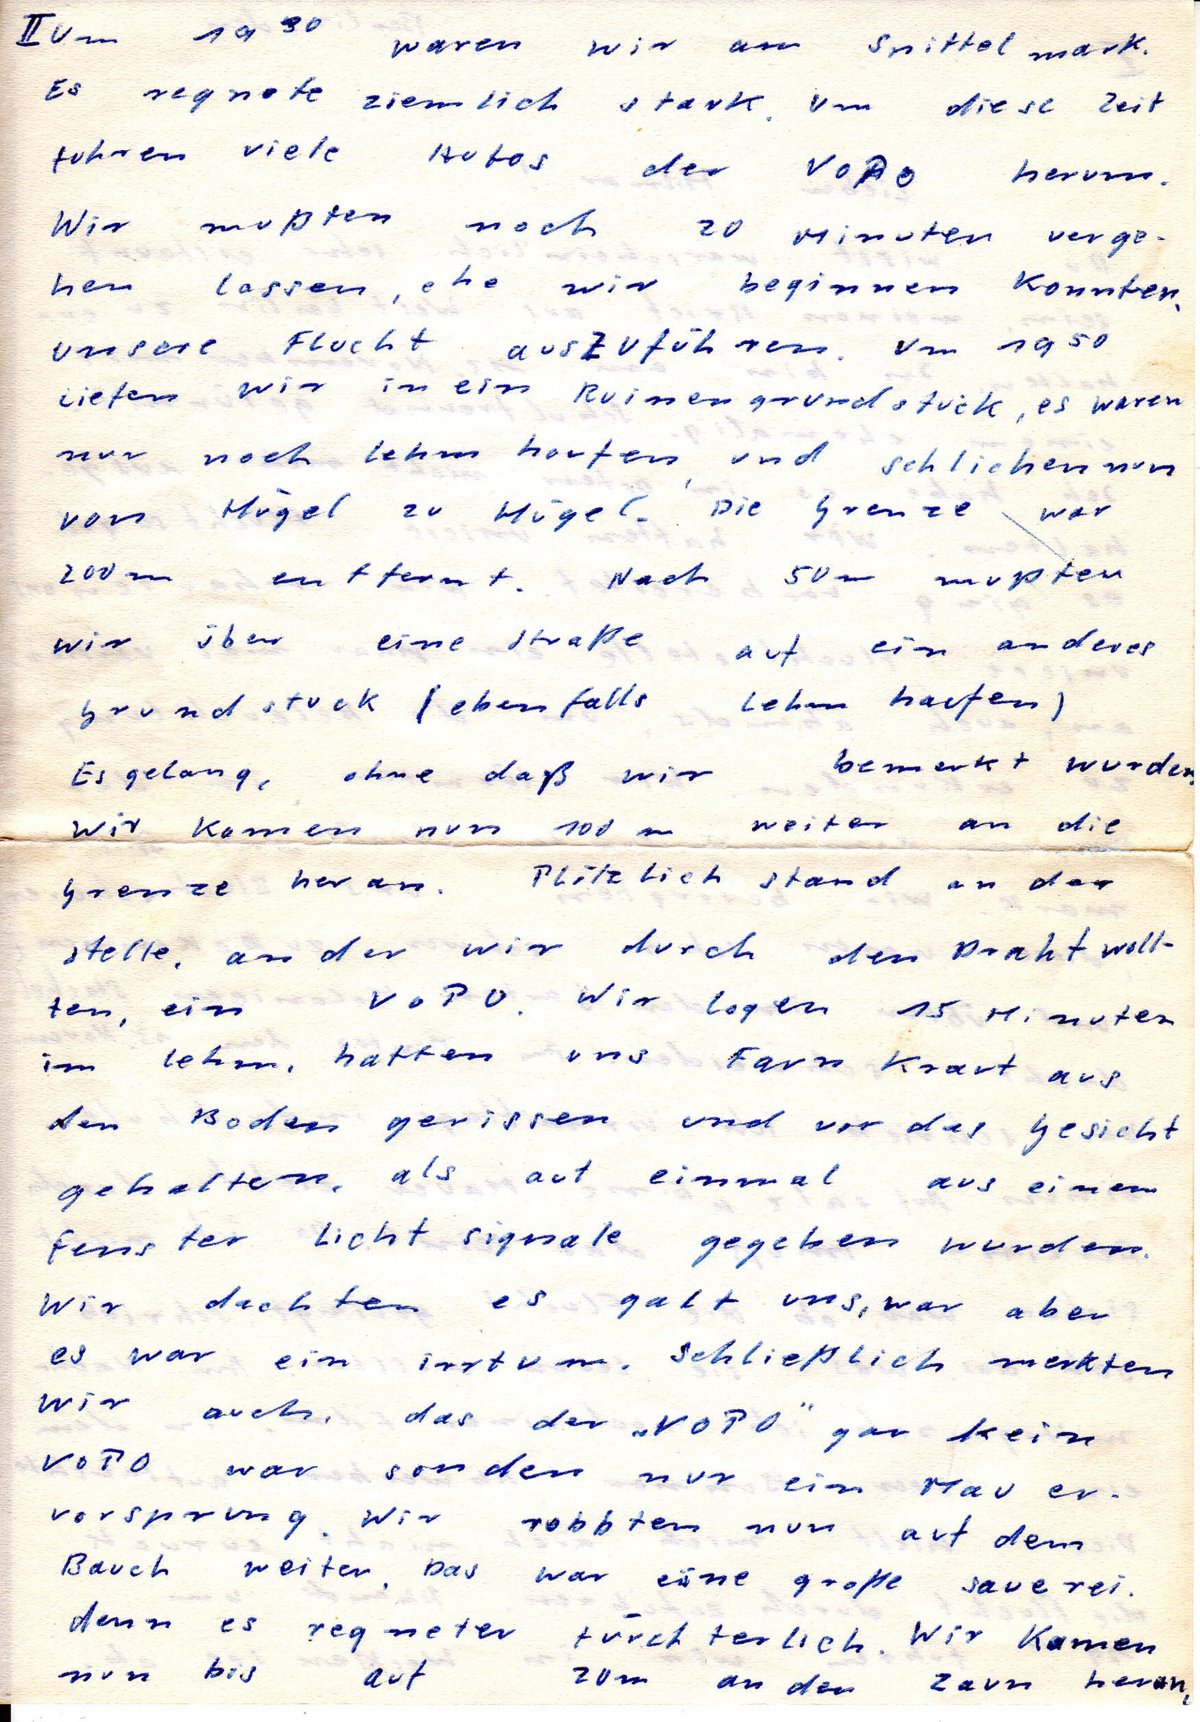 II Um 19³⁰ waren wir am Spittelmark.
Es regnete ziemlich stark. Um diese Zeit
fuhren viele Autos der VoPo herum.
Wir mußten noch 20 Minuten verge-
hen lassen, ehe wir beginnen konnten,
unsere Flucht auszuführen. Um 19⁵⁰
liefen wir in ein Ruinengrundstück, es waren
nur noch Lehmhaufen, und schlichen nun
von Hügel zu Hügel. Die Grenze war
200m entfernt. Nach 50m mußten
wir über eine Straße auf ein anderes
Grundstuck (ebenfalls Lehmhaufen)
Es gelang, ohne daß wir bemerkt wurden.
Wir kamen nun 100m weiter an die
Grenze heran. Plötzlich stand an der
Stelle, an der wir durch den Draht woll-
ten, ein VoPO. Wir lagen 15 Minuten
im Lehm, hatten uns Farnkraut aus
den Boden gerissen und vor das Gesicht
gehalten, als auf einmal aus einem
Fenster Lichtsignale gegeben wurden.
Wir dachten es galt uns, war aber
es war ein irrtum. Schließlich merkten
wir auch, das der „VOPO" gar kein
VOPO war sonden nur ein Mauer-
vorsprung. Wir robbten nun auf dem
Bauch weiter. Das war eine große Sauerei.
denn es regneter fürchterlich. Wir kamen
nun bis auf 20m an den Zaun heran,